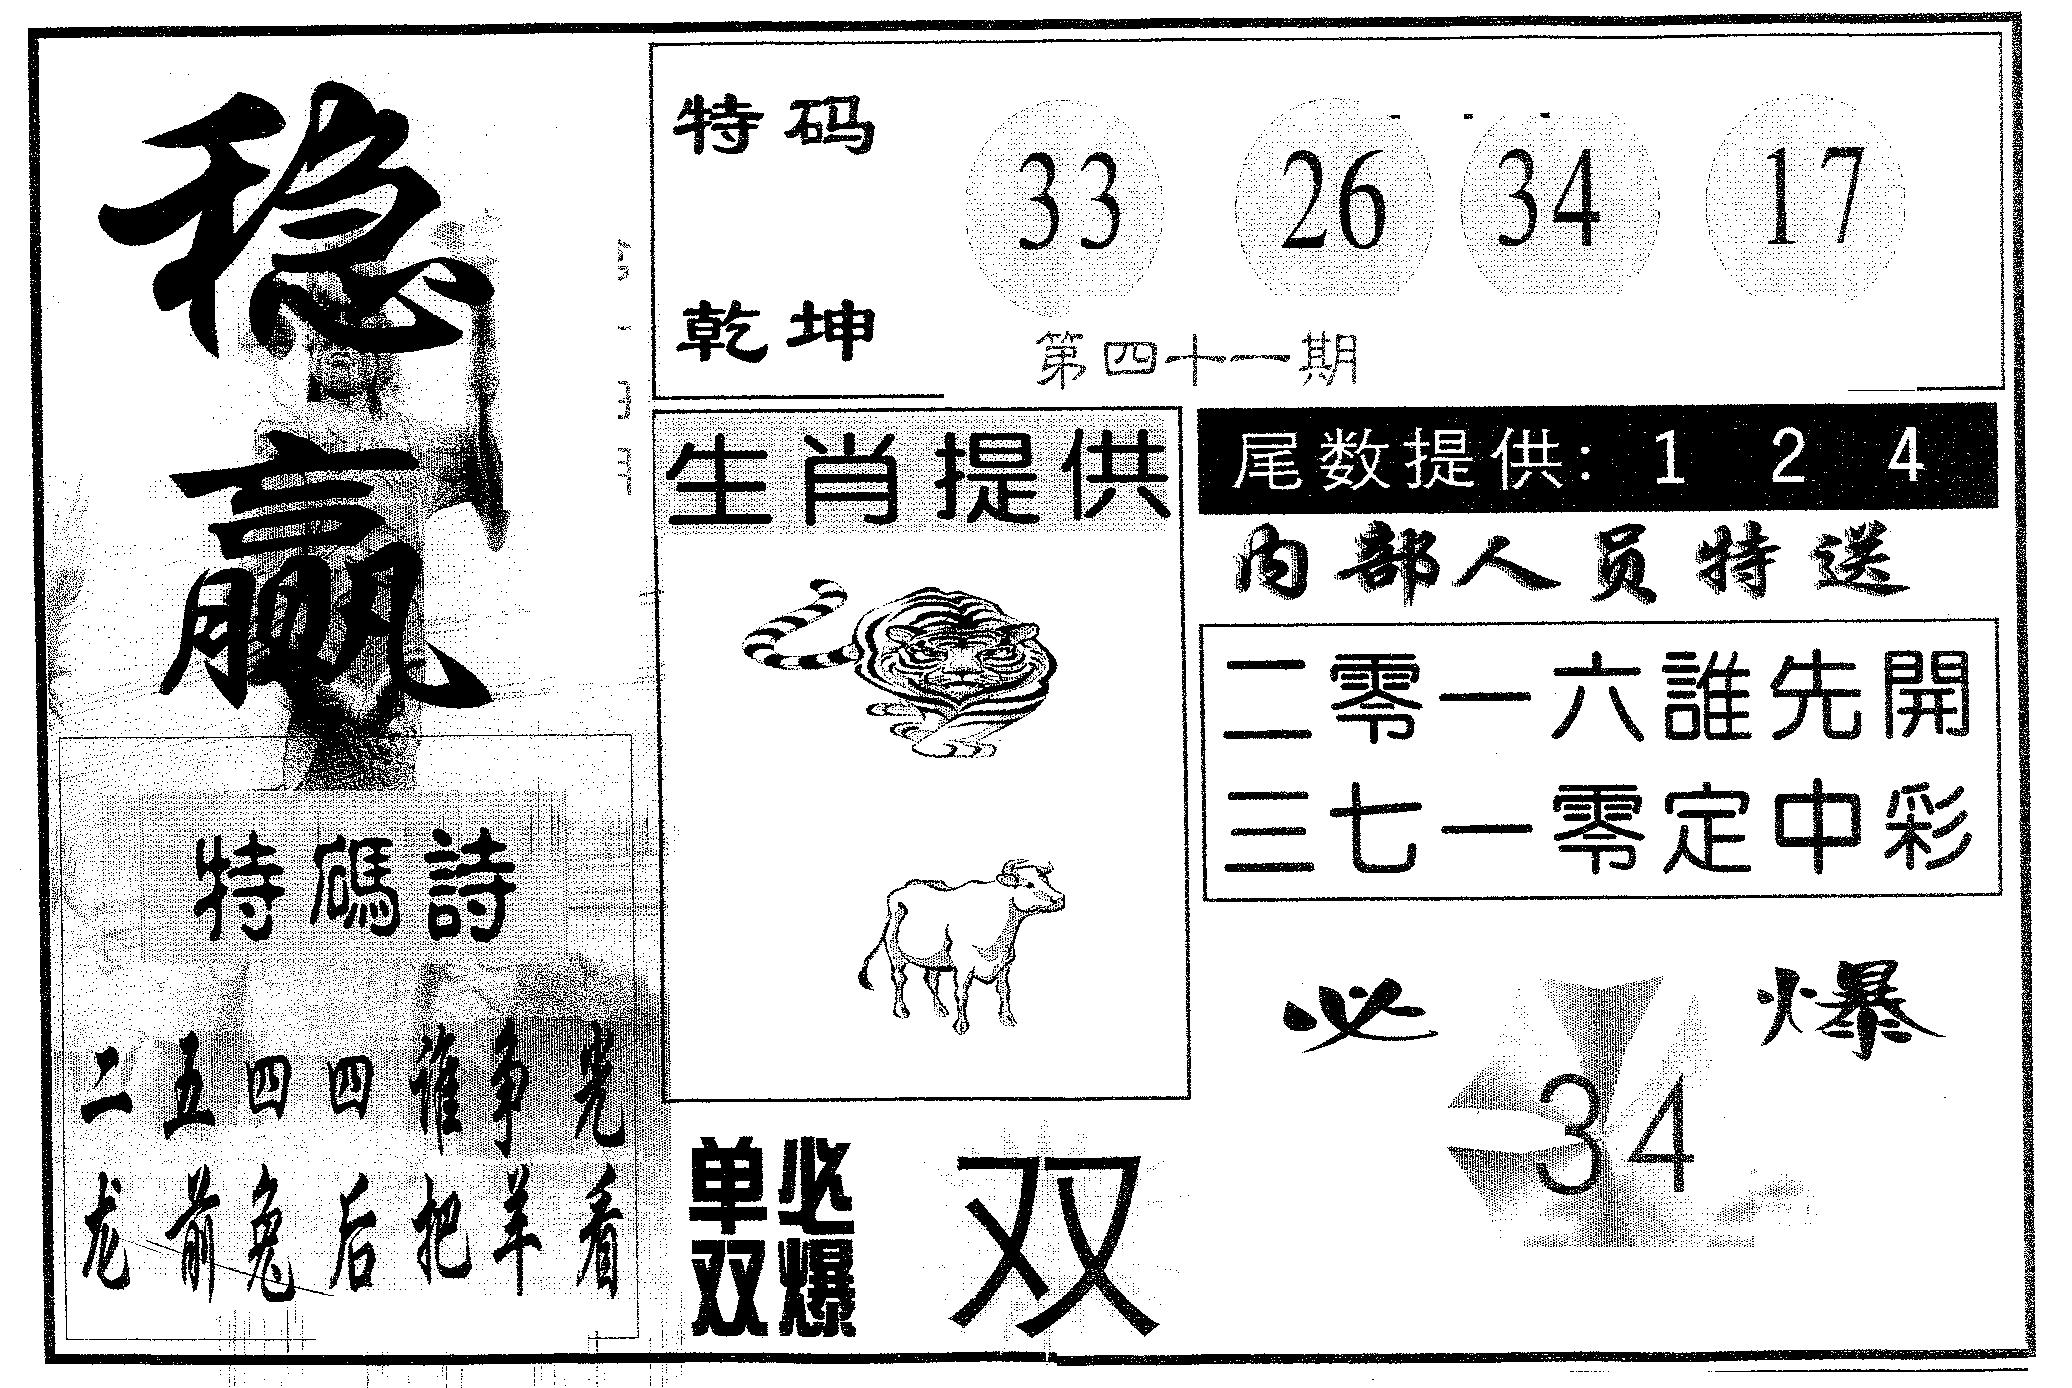 稳赢
特码
乾坤
33 26 34 17
第四十一期
生肖提供
尾数提供: 1 2 4
内部人员特送
二零一六誰先開
三七一零定中彩
特碼詩
二五四四谁争光
龙前兔后把羊看
必爆
34
单双
必爆
双